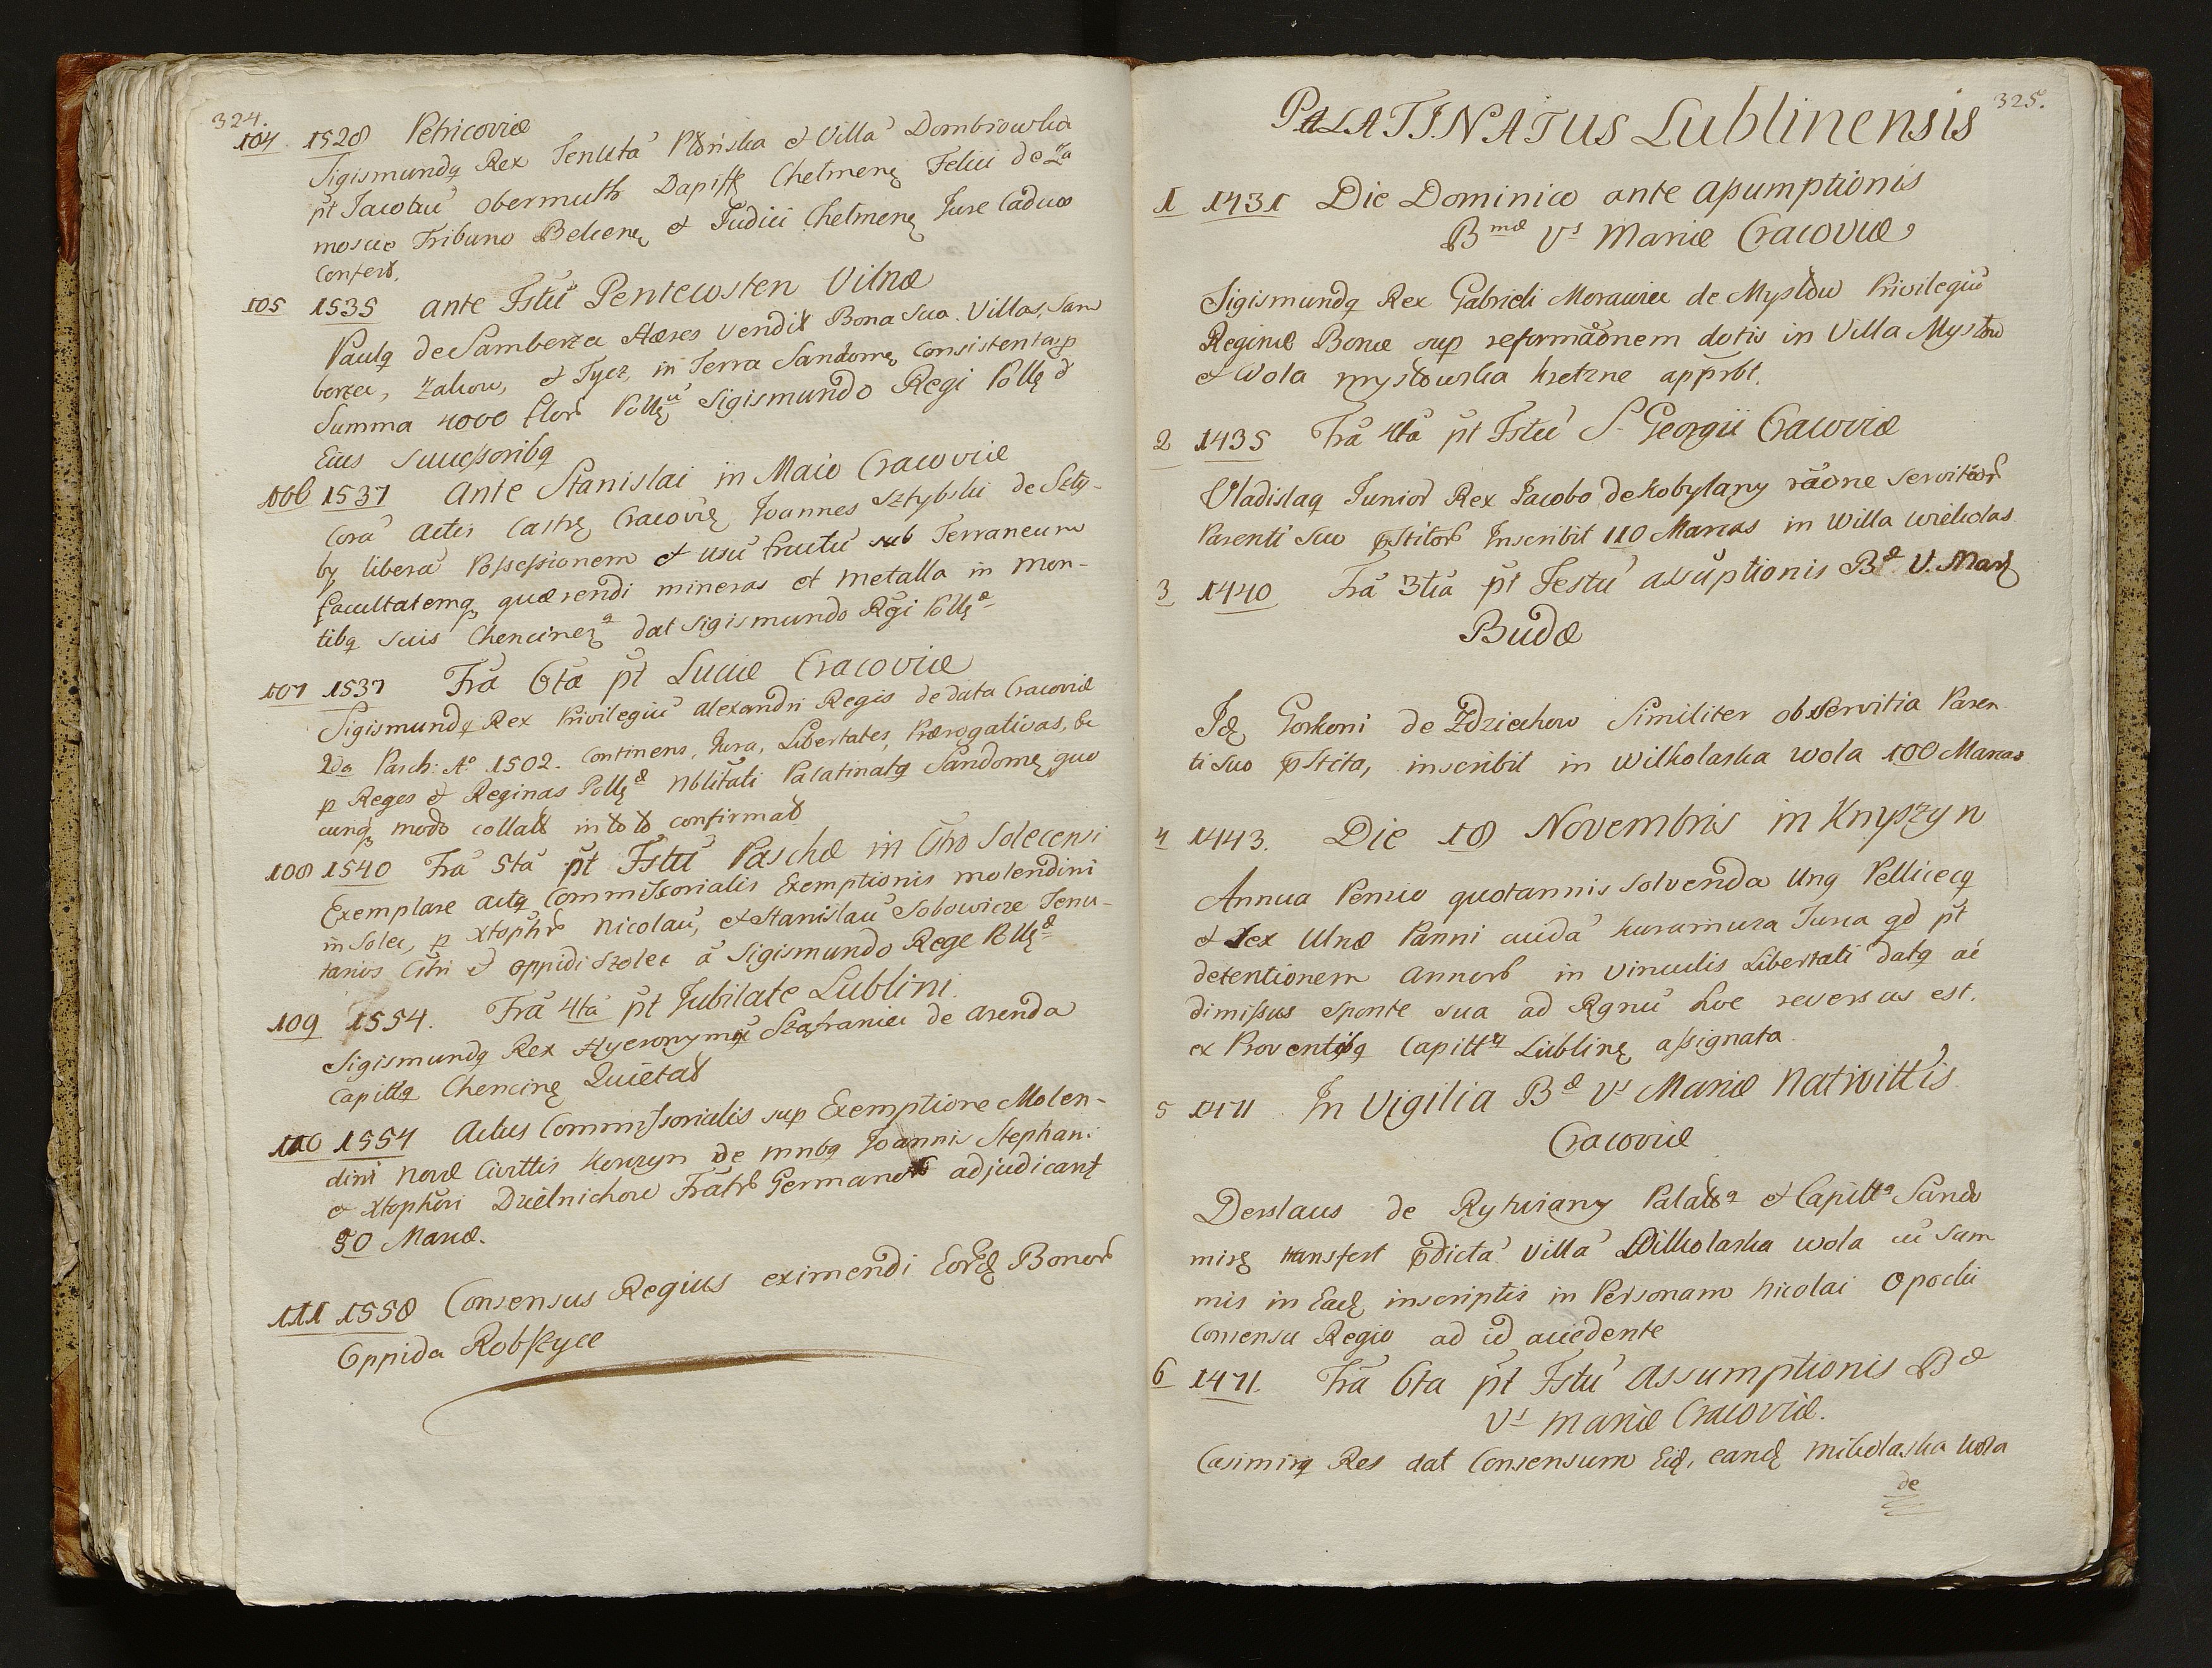 324.
104 1528 Petricoviæ
Sigismundq Rex Tenutã Płońska et Villã Dombrowka
pt Jacobũ Obermuth Dapiff Chełmenę Felici de Za
moscie Tribuno Belcenę et Judici Chełmenę Jure Caduco
Confert.
105 1535 ante Fstũ Pentecosten Vilnæ
Paulq de Samborzec Hæres Vendit Bona Sua. Villas, Sam
borzec, Zakow, et Tycz, in Terra Sandomę Consistentas p
Summa 4000 flor Pollę Sigismundo Regi Pollę et
Eius Successoribq
106 1537 Ante Stanislai in Maio Cracoviæ
Corã Actis Castrę Cracovię Joannes Sztybski de Szty-
by liberã Possessionem et usũ fructũ sub Terraneum
facultatemq quærendi mineras et metalla in mon-
tibq suis Chencinę dat Sigismundo Rgi Pollę
107 1537 Frã 6tã pt Luciæ Cracoviæ
Sigismundq Rex Privilegiũ Alexandri Regis de data Cracoviæ
2da Pasch: Aº 1502. Continens, Jura, Libertates, Prærogativas, &c
p Reges et Reginas Pollę Nblitati Palatinatq Sandomę quo
cunq modo collat in confirmat
108 1540 Frã 5tã pt Fstũ Paschæ in Solecensi
Exemplare actq Commissorialis Exemptionis molendini
in Solec, p Xtophr Nicolaũ, et Stanislaũ Sobowicze Tenu-
tarios Ctri et oppidi Szolec ã Sigismundo Rege Pollę
109 1554. Frã 4tã pt Jubilate Lublini.
Sigismundq Rex Hyeronymũ Szafraniec de Arenda
Capittq Chencinę Quietat
110 1554 Actus Commissorialis sup Exemptione Molen-
dini Novæ Civittis Korczyn de mnbq Joannis Stephani
et Xtophori Dzielnichow Fratr German adjudicant
50 Marcæ.
111 1558 Consensus Regius eximendi Bonor
Oppida Robszyce
325.
PALATINATUS Lublinensis
1 1431 Die Dominico ante Assumptionis
Bmæ Vs Mariæ Cracoviæ
Sigismundq Rex Gabrieli Morawiec de Mysłow Privilegiũ
Reginæ Bonæ sup reformãonem dotis in Villa Mysłow
et Wola mysłowska appŕbt.
2 1435 Frã 4tã pt Fstũ S. Georgii Cracoviæ
Vladislaq Junior Rex Jacobo de Kobylany rãone servitior
Parenti Suo pstitor Inscribit 110 Marcas in Willa Wielkolas
3 1440 Frã 3tiã pt Festũ Assũptionis Bæ V. Marę
Budæ
Idę Gorkoni de Zdziechow Similiter ob Servitia Paren
ti Suo pstita, inscribit in Wilkolaska Wola 100 Marcas
4 1443. Die 18 Novembris in Knyszyn
Annua Pensio quotannis Solvenda Unq Pellicecq
et sex Ulnæ Panni cuidã Kuramura Turca qd pt
detentionem Annor in vinculis Libertati datq ac
dimissus sponte sua ad Rgnũ hoc reversus est.
ex Proventibq Capitt Lublinę assignata.
5 1471 In Vigilia Bæ Vs Mariæ Nativittis
Cracoviæ
Derslaus de Rytwiany Palatt et Capitt Sando
mirę transfert pdictã Villã Wilkolaska Wola cũ Sum
mis in Eadę inscriptis in Personam Nicolai Opocki
Consensu Regio ad id accedente
6 1471. Frã 6ta pt Fstũ Assumptionis Bæ
Vs Mariæ Cracoviæ.
Casimirq Rex dat Consensum Eid, eandę Milkolaska Wola
de